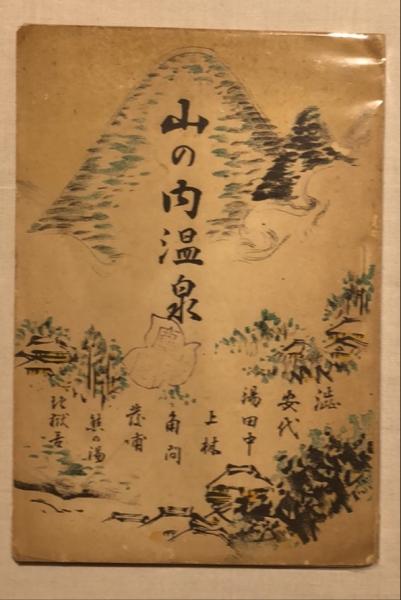 山の内温泉
澁
安代
湯田中
上林
角間
發哺
熊の湯
地獄谷